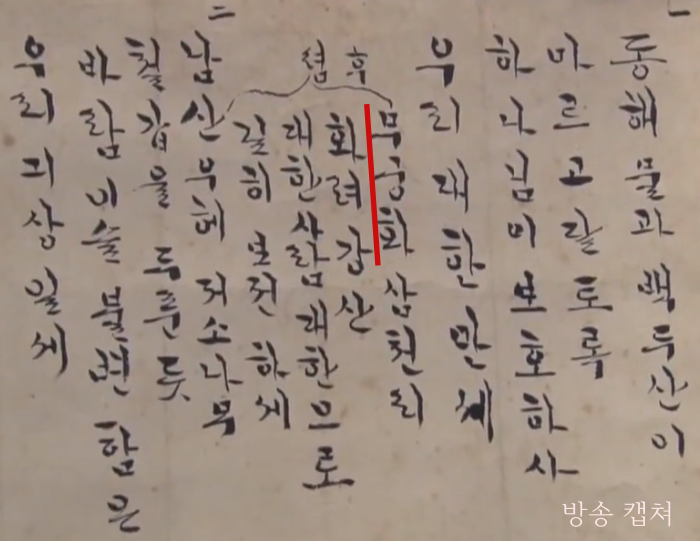 一
동해물과백두산이
마르고달토록
하나님이보호하사
우리대한만세
후렴
무궁화삼천리
화려강산
대한사람대한으로
길히보전하세
二
남산우헤저소나무
철갑을두룬듯
바람이슬불변함은
우리긔상일세
방송 캡쳐